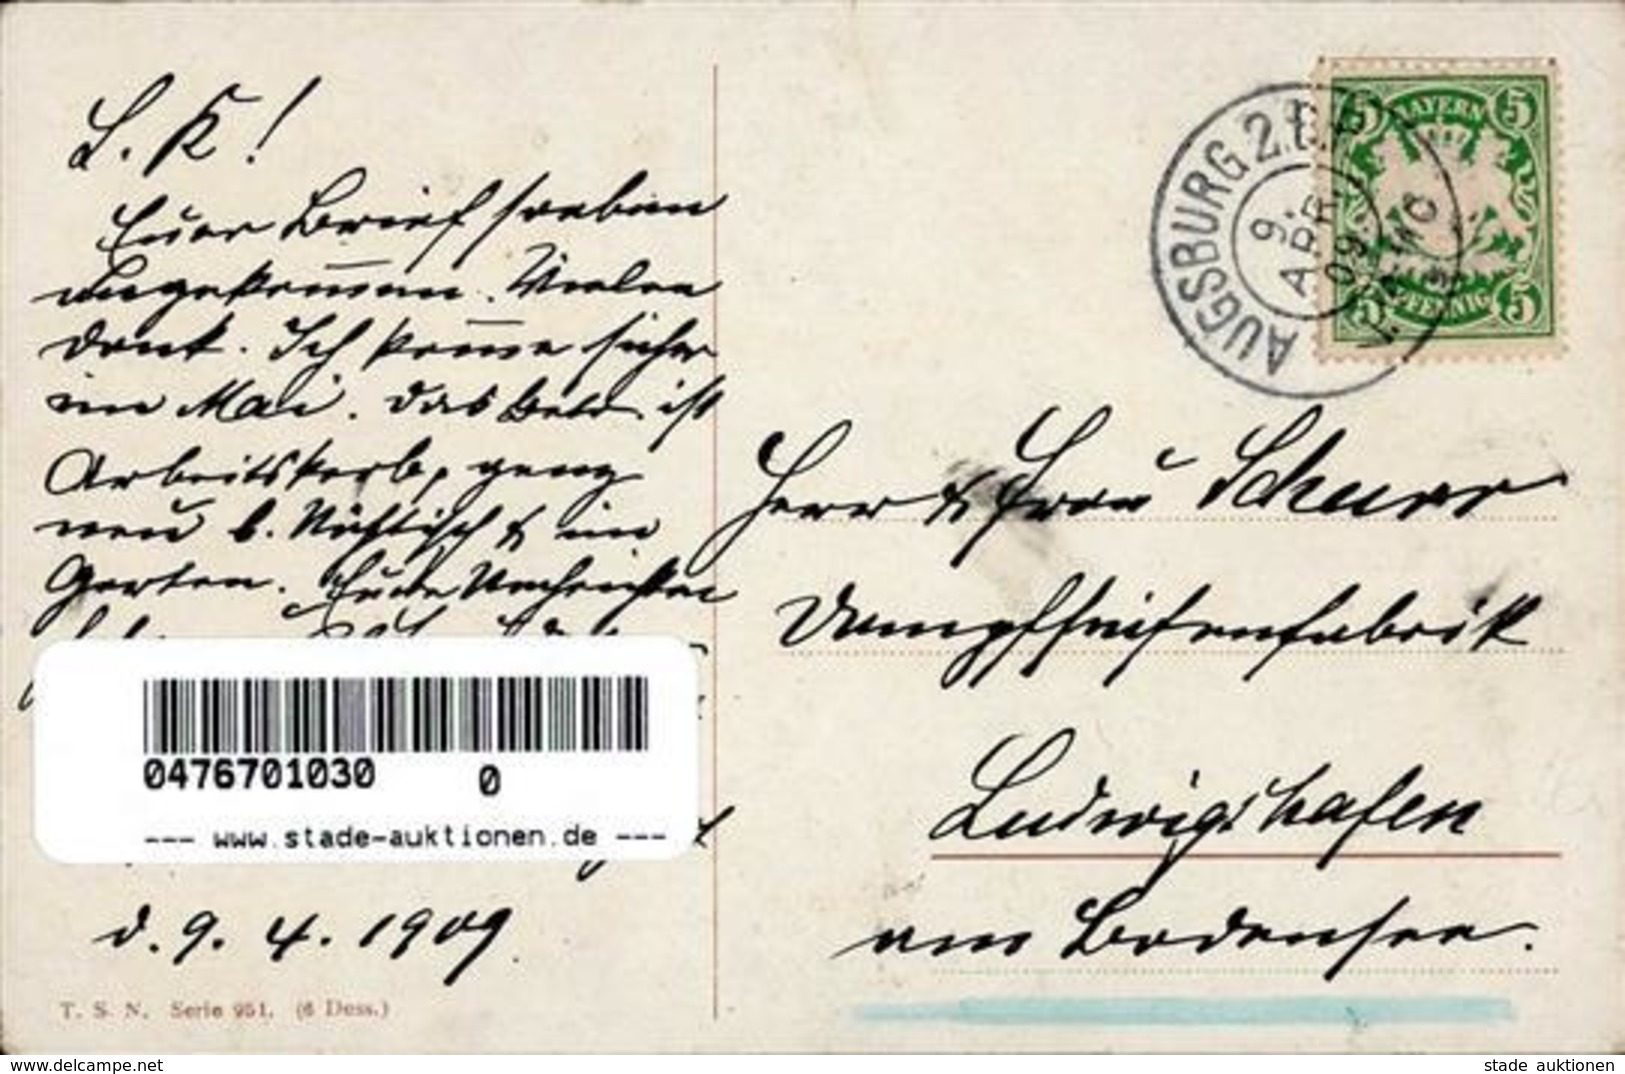 L. K!
Euer Brief soeben
angekommen. Vielen
Dank. Ich komme sicher
im Mai. Das Bett ist
Arbeitskorb, ganz
neu b. Nähtisch & im
Garten. Eure Nachrichten
d. 9. 4. 1909.
T. S. N. Serie 951. (6 Dess.)
0476701030 0
--- www.stade-auktionen.de ---
AUGSBURG 2.
9.
APR
09.
BAYERN
5 5
5 PFENNIG 5
Herr & Frau Schurr
Dampfseifenfabrik
Ludwigshafen
am Bodensee.
www.delcampe.net
stade auktionen